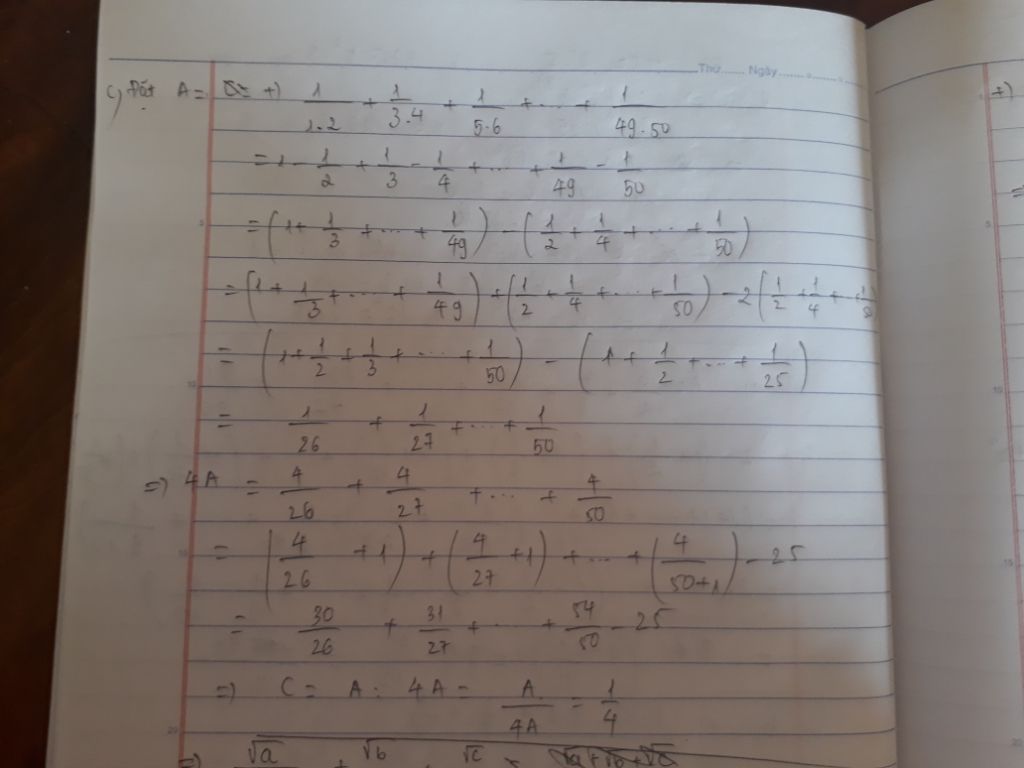 Thứ ..... Ngày ..............
c) Đặt A = +) 1/1.2 + 1/3.4 + 1/5.6 + ... + 1/49.50
= 1 - 1/2 + 1/3 - 1/4 + ... + 1/49 - 1/50
= (1 + 1/3 + ... + 1/49) - (1/2 + 1/4 + ... + 1/50)
= (1 + 1/3 + ... + 1/49) + (1/2 + 1/4 + ... + 1/50) - 2(1/2 + 1/4 + ... + 1/50)
= (1 + 1/2 + 1/3 + ... + 1/50) - (1 + 1/2 + ... + 1/25)
= 1/26 + 1/27 + ... + 1/50
=> 4A = 4/26 + 4/27 + ... + 4/50
= (4/26 + 1) + (4/27 + 1) + ... + (4/50+1) - 25
= 30/26 + 31/27 + ... + 54/50 - 25
=> C = A : 4A = A/4A = 1/4
=) √a + √b + √c
+)